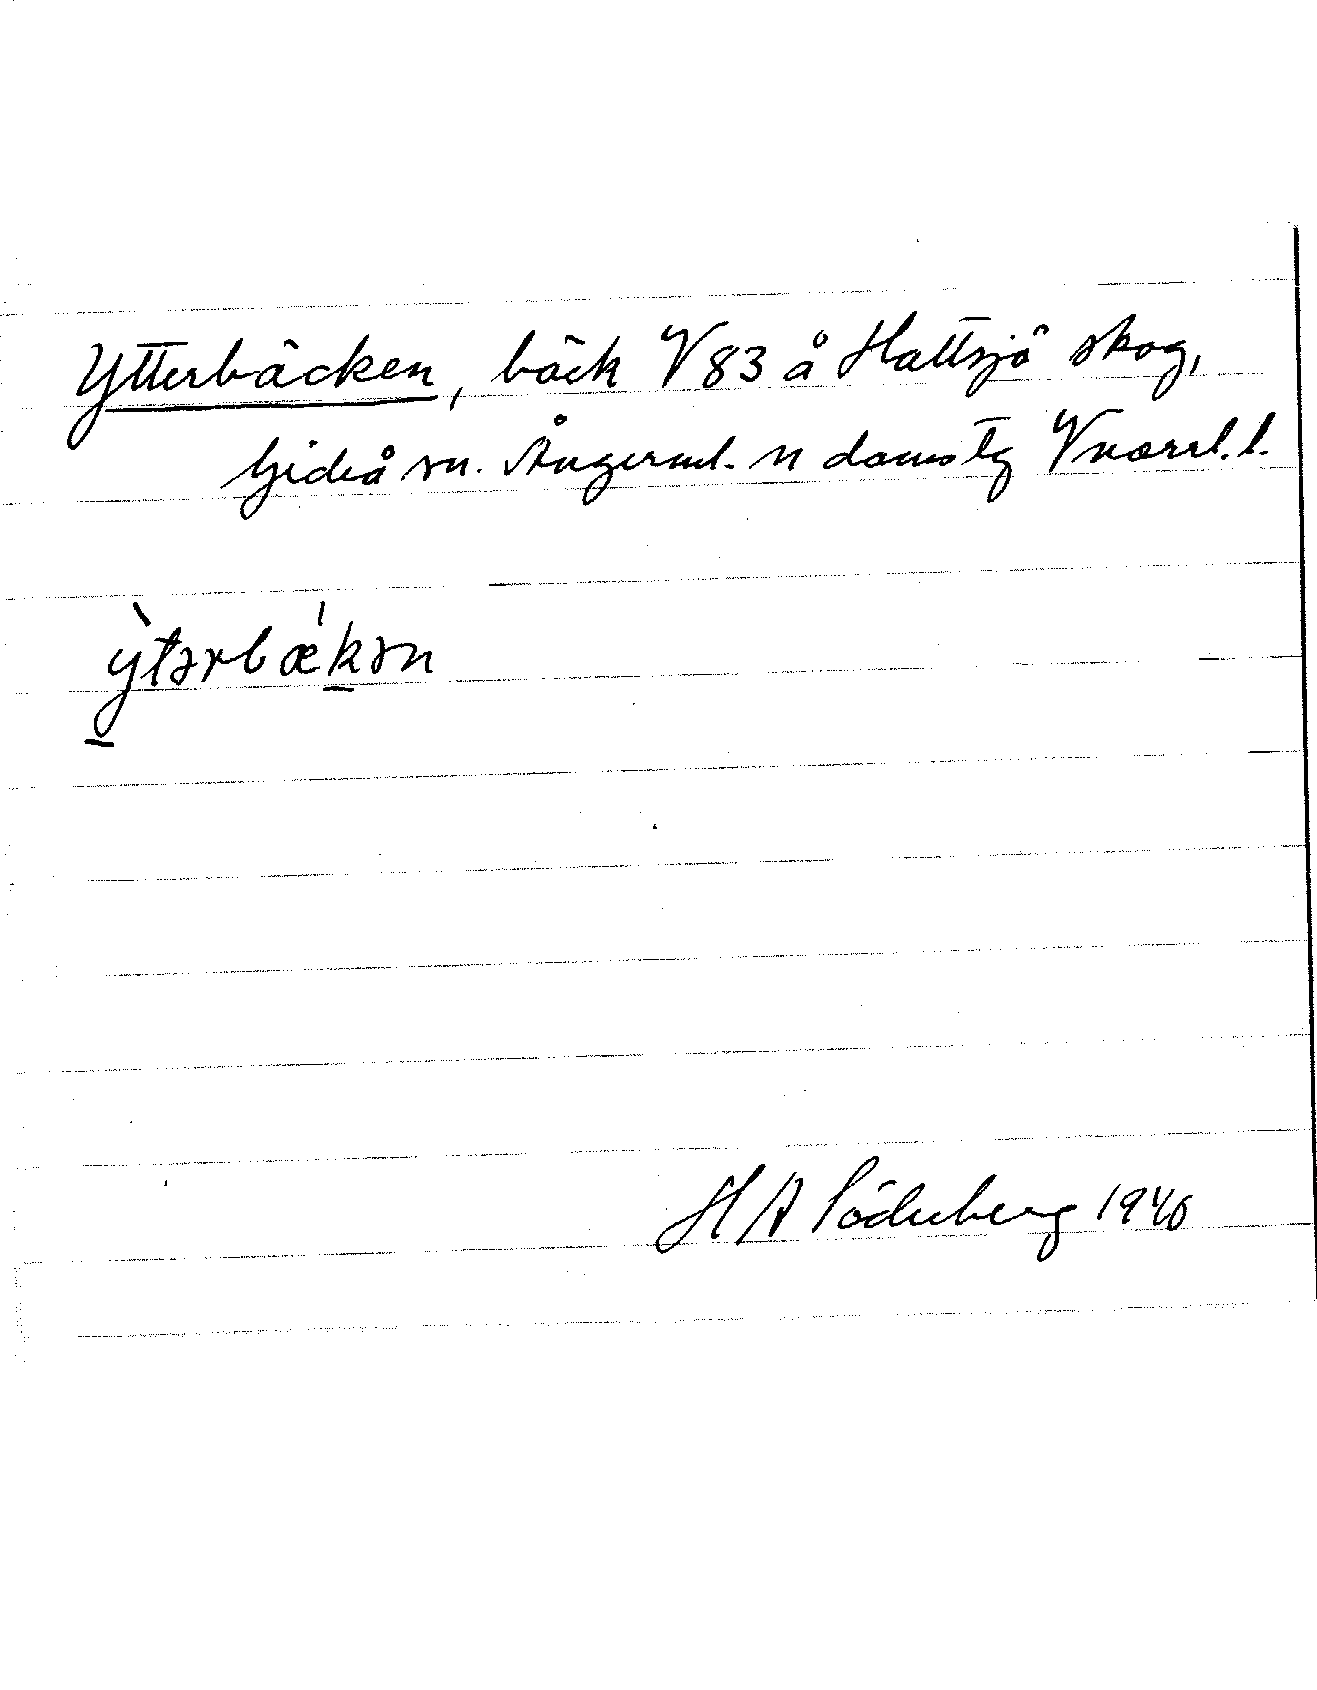 Ytterbäcken, bäck V 83 å Hattsjö skog,
Gideå sn. Ångerml. n domstg Vnorrl. l.
ỳ̠tərbæ´k̠ən
H A Söderberg 1940